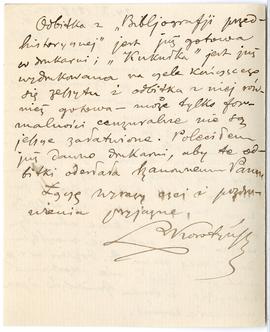 Odbitka z „Bibljografji przed-
historycznej” jest już gotowa
w drukarni i „Kukułka” jest już
wydrukowana na czele kończącego
się zeszytu i odbitka z niej rów-
nież gotowa – może tylko for-
malności cenzuralne nie są
jeszcze załatwione. Poleciłem
już dawno drukarni, aby te od-
bitki odesłała Szanownemu Panu.
Łączę wyrazy czci i pozdro-
wienia przyjazne,